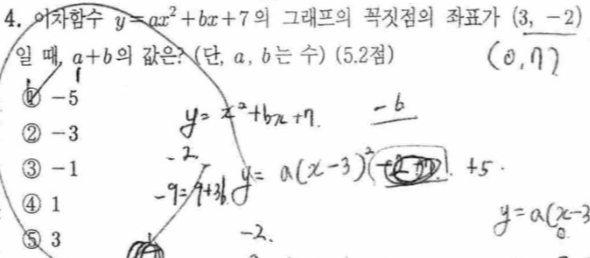 4. 이차함수 y=ax²+bx+7의 그래프의 꼭짓점의 좌표가 (3, -2)
일 때, a+b의 값은? (단, a, b는 수) (5.2점) (0, 7)
① -5
② -3
③ -1
④ 1
⑤ 3
y= x²+bx+7.
-6
-2
y= a(x-3)² +5.
-9=9+3b
y=a(x-3
-2.